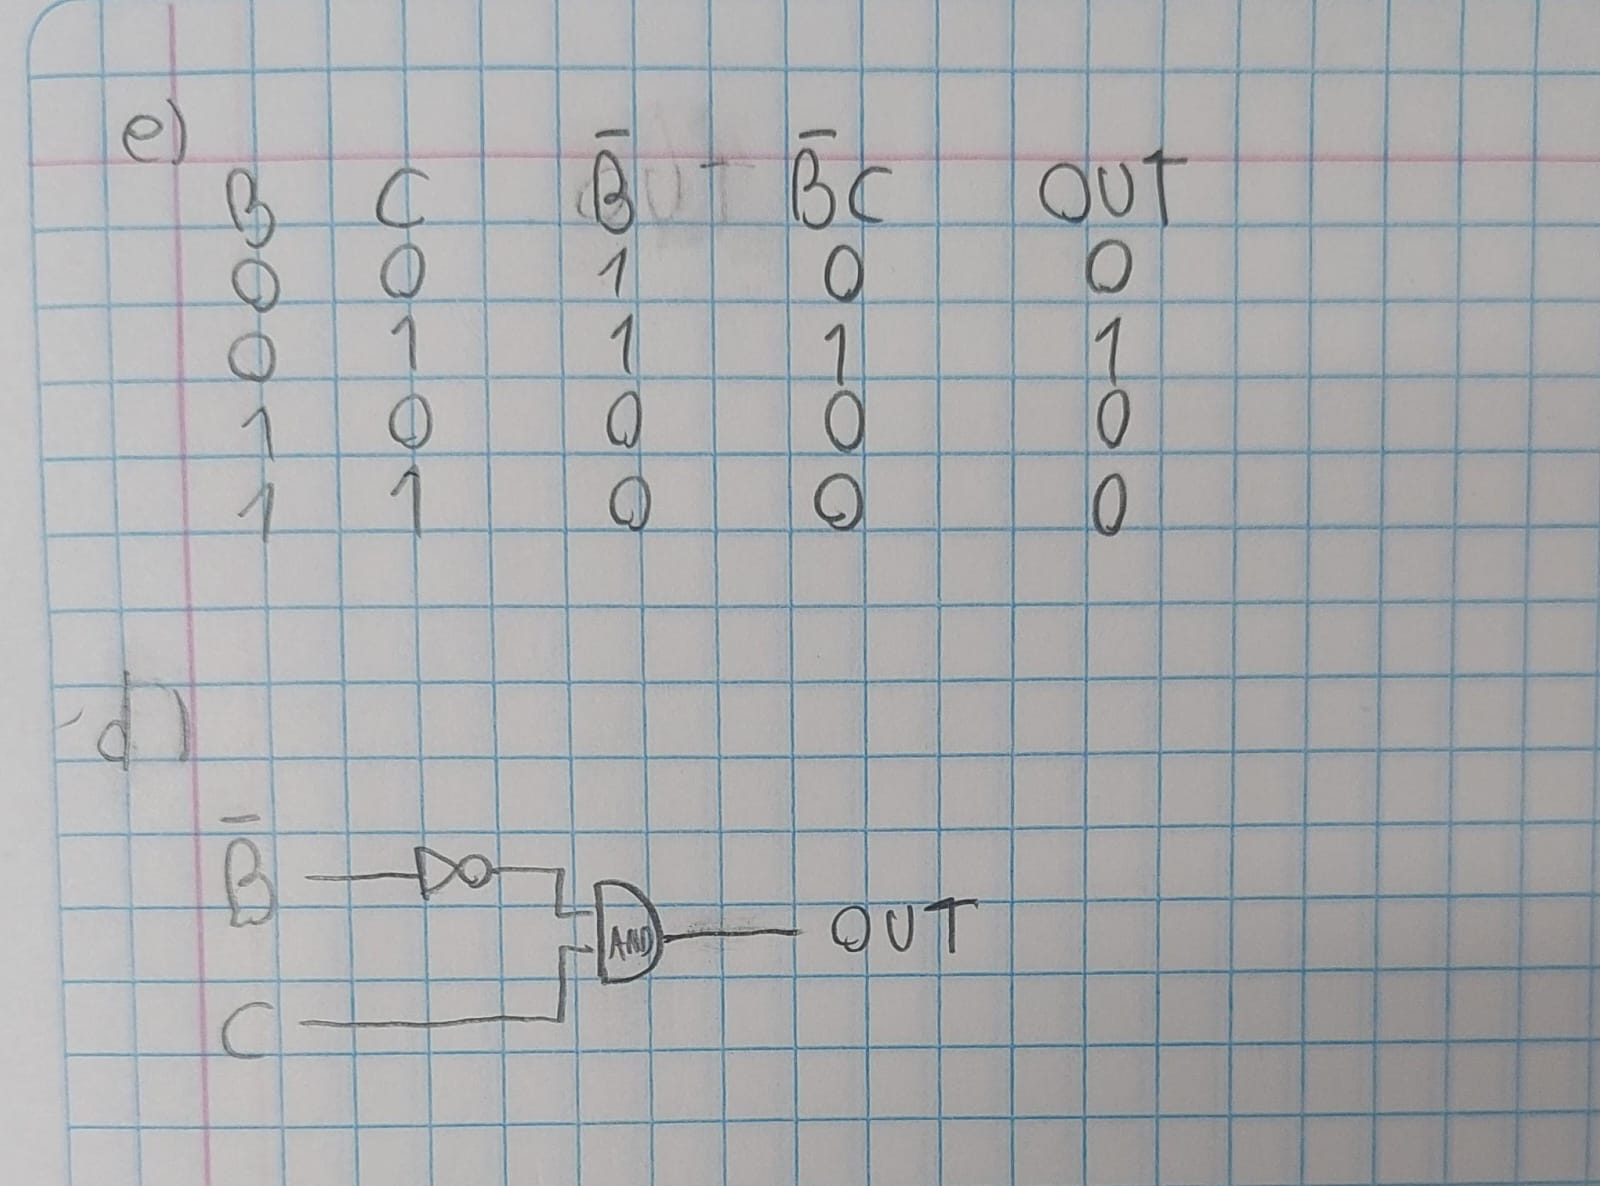 e)
B C B̅ B̅C OUT
0 0 1 0 0
0 1 1 1 1
1 0 0 0 0
1 1 0 0 0
d)
B̅
AND OUT
C